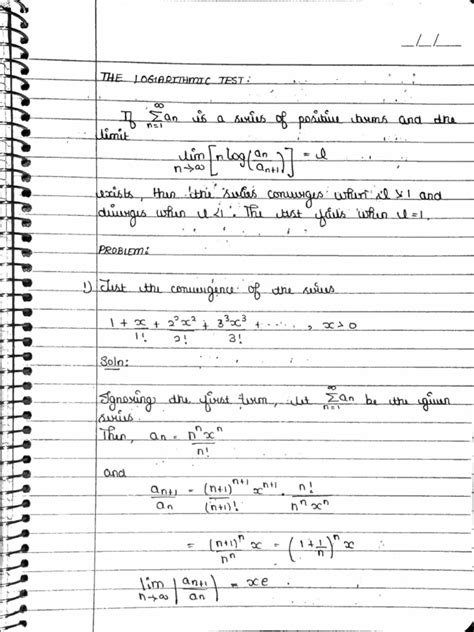 _/_/_
THE LOGARITHMIC TEST:
If ∞Σn=1 an is a series of positive terms and the
limit
lim n→∞ [n log(an/an+1)] = l
exists, then the series converges when l > 1 and
diverges when l < 1. The test fails when l = 1.
PROBLEM:
1) Test the convergence of the series
1 + x/1! + 2²x²/2! + 3³x³/3! + ....., x > 0
Soln:
Ignoring the first term, let ∞Σn=1 an be the given
series.
Then, an = nⁿxⁿ/n!
and
an+1/an = (n+1)ⁿ⁺¹ xⁿ⁺¹/(n+1)! . n!/nⁿxⁿ
= (n+1)ⁿ/nⁿ x = (1+1/n)ⁿ x
lim n→∞ |an+1/an| = xe